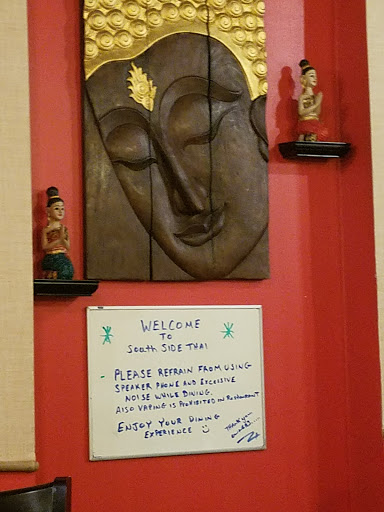 WELCOME
TO
South SIDE THAI
- PLEASE REFRAIN FROM USING
SPEAKER PHONE AND EXCESSIVE
NOISE WHILE DINING.
ALSO VAPING IS PROHIBITED IN RESTAURANT
ENJOY YOUR DINING
EXPERIENCE
THANK YOU